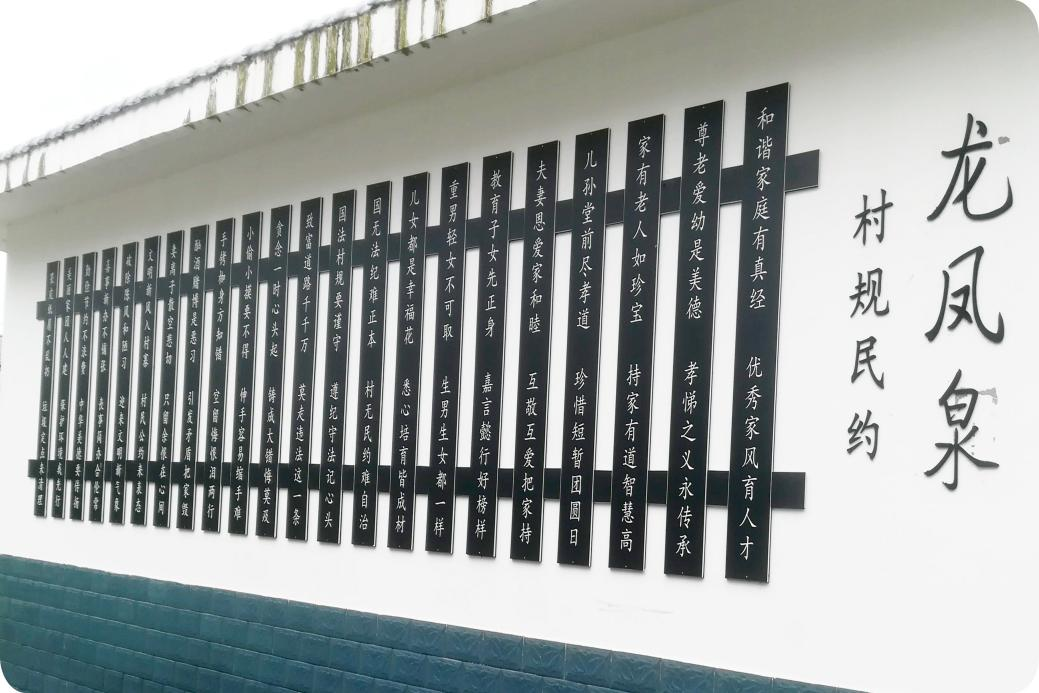 龙凤泉
村规民约
和谐家庭有真经 优秀家风育人才
尊老爱幼是美德 孝悌之义永传承
家有老人如珍宝 持家有道智慧高
儿孙堂前尽孝道 珍惜短暂团圆日
夫妻恩爱家和睦 互敬互爱把家持
教育子女先正身 嘉言懿行好榜样
重男轻女不可取 生男生女都一样
儿女都是幸福花 悉心培育皆成材
国无法纪难正本 村无民约难自治
国法村规要谨守 遵纪守法记心头
致富道路千千万 莫走违法这一条
贪念一时心头起 铸成大错悔莫及
小偷小摸要不得 伸手容易缩手难
手铐枷身方知错 空留悔恨泪两行
酗酒赌博是恶习 引发矛盾把家毁
妻离子散空悲切 只留余恨在心间
文明新风入村寨 村民公约来表态
破除陈风和陋习 迎来文明新气象
喜事新办不铺张 丧事简办合伦常
勤俭节约不浪费 中华美德要待扬
美丽家园人人建 保护环境我先行
果皮纸屑不乱扔 垃圾定点来清理